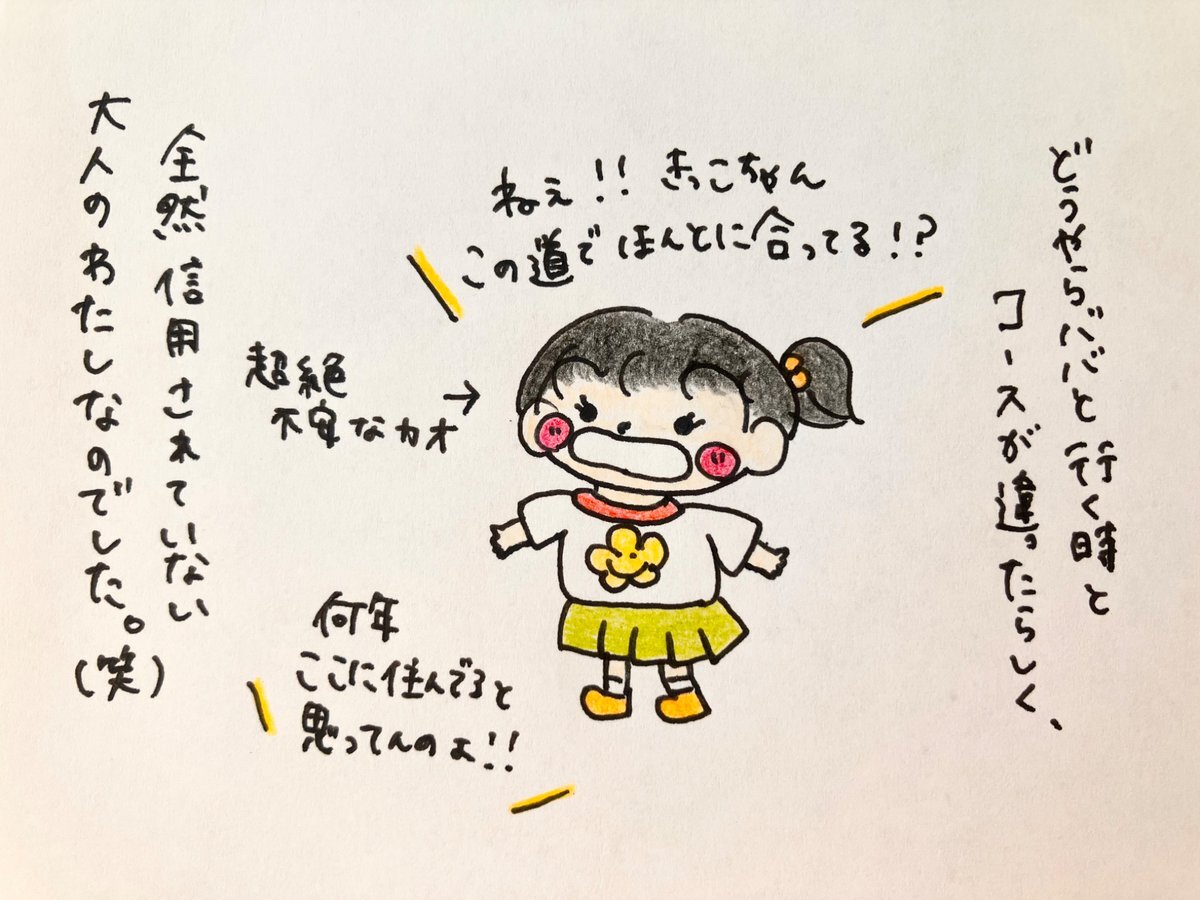 どうやらババと行く時と
コースが違ったらしく、
ねぇ!! きっこちゃん
この道でほんとに合ってる!?
超絶
不安なカオ→
何年
ここに住んでると
思ってんのよ!!
全然信用されていない
大人のわたしなのでした。(笑)